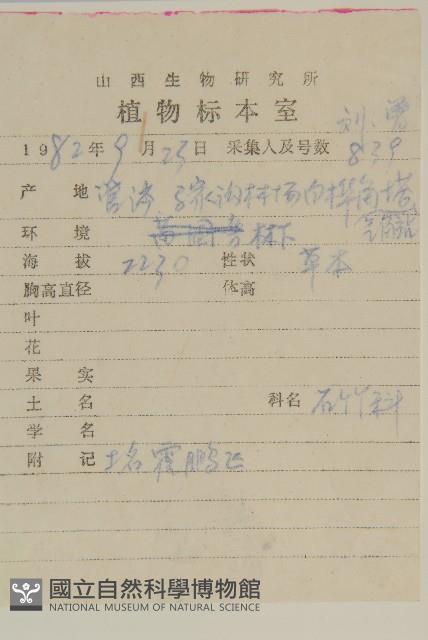 山西生物研究所
植物标本室
刘、曾
1982年9月23日 采集人及号数 839
产 地 林场内
环 境 林下
海 拔 2230 性状 草本
胸高直径 体高
叶
花
果 实
土 名 科名 石竹科
学 名
附 记 土名霍鹏飞
國立自然科學博物館
NATIONAL MUSEUM OF NATURAL SCIENCE